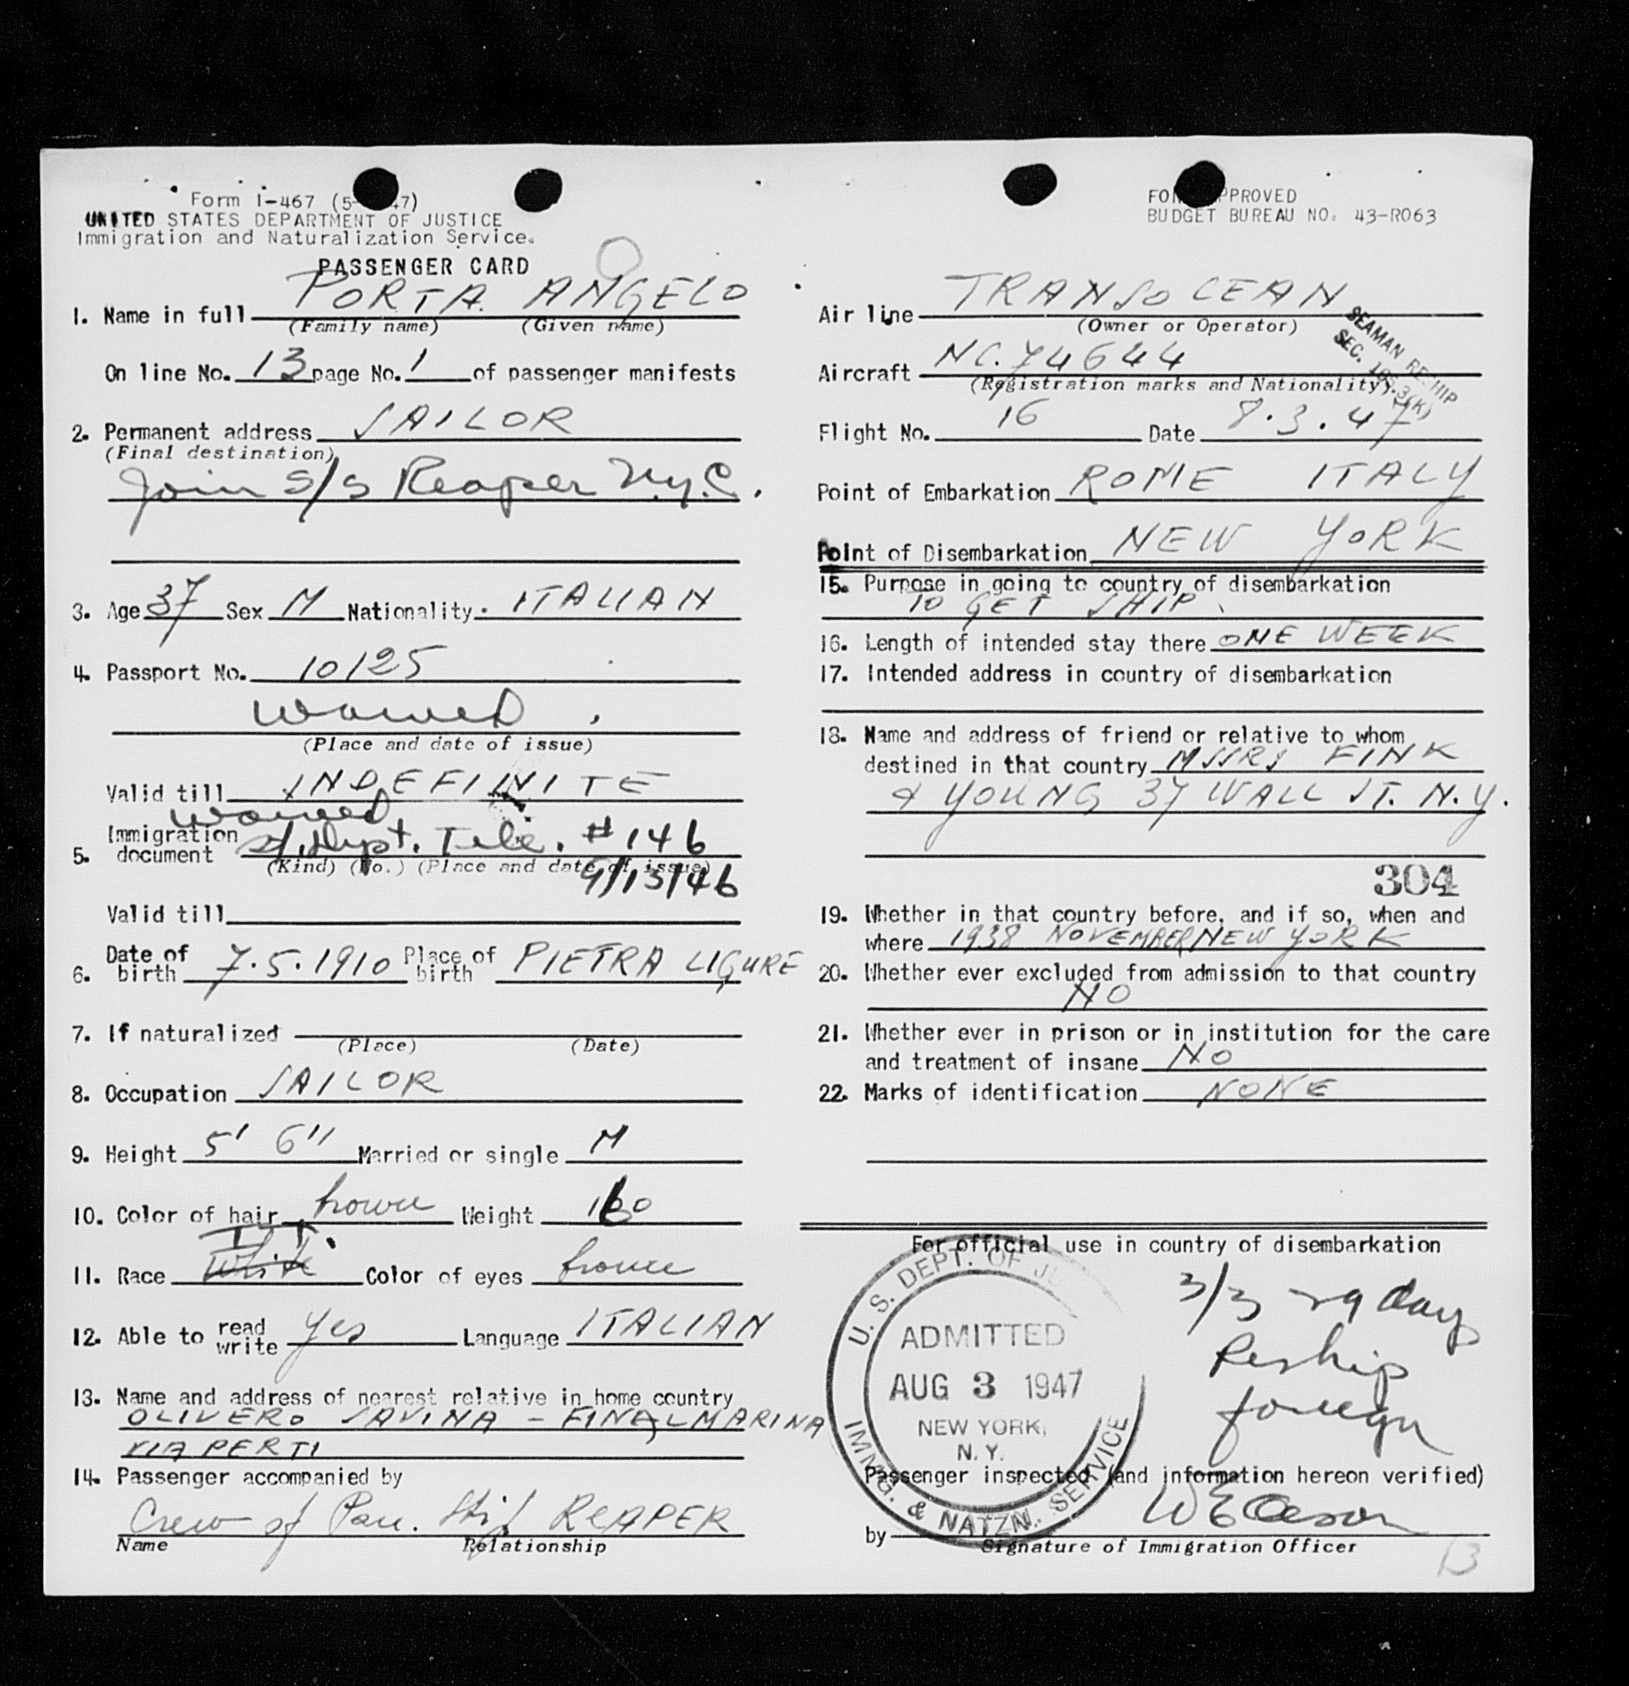 Form I-467 (5- 47)
UNITED STATES DEPARTMENT OF JUSTICE
Immigration and Naturalization Service.
PASSENGER CARD
1. Name in full PORTA ANGELO
(Family name) (Given name)
On line No. 13 page No. 1 of passenger manifests
2. Permanent address SAILOR
(Final destination)
Join S/S Reaper N.Y.C.
3. Age 37 Sex M Nationality. ITALIAN
4. Passport No. 10125
waived
(Place and date of issue)
Valid till INDEFINITE
waived
5. Immigration document Dept. Tele. #146
(Kind) (No.) (Place and date of issue)
9/13/46
Valid till
6. Date of birth 7.5.1910 Place of birth PIETRA LIGURE
7. If naturalized
(Place) (Date)
8. Occupation SAILOR
9. Height 5' 6" Married or single M
10. Color of hair brown Weight 160
11. Race IT. White Color of eyes brown
12. Able to read write yes Language ITALIAN
13. Name and address of nearest relative in home country
OLIVERO SAVINA - FINALMARINA
VIA PERTI
14. Passenger accompanied by
Crew of Pan. Ship REAPER
Name Relationship
FORM APPROVED
BUDGET BUREAU NO. 43-R063
Air line TRANSOCEAN
(Owner or Operator)
SEAMAN RESHIP
SEC. (K)
Aircraft NC.74644
(Registration marks and Nationality)
Flight No. 16 Date 8.3.47
Point of Embarkation ROME ITALY
Point of Disembarkation NEW YORK
15. Purpose in going to country of disembarkation
TO GET SHIP
16. Length of intended stay there ONE WEEK
17. Intended address in country of disembarkation
18. Name and address of friend or relative to whom
destined in that country MSSRS FINK
& YOUNG 37 WALL ST. N.Y.
304
19. Whether in that country before, and if so, when and
where 1938 NOVEMBER NEW YORK
20. Whether ever excluded from admission to that country
NO
21. Whether ever in prison or in institution for the care
and treatment of insane NO
22. Marks of identification NONE
For official use in country of disembarkation
U. S. DEPT. OF JU
ADMITTED
AUG 3 1947
NEW YORK,
N. Y.
IMMG. & NATZN. SERVICE
3/3 29 day
Reship
foreign
Passenger inspected (and information hereon verified)
by
Signature of Immigration Officer
13